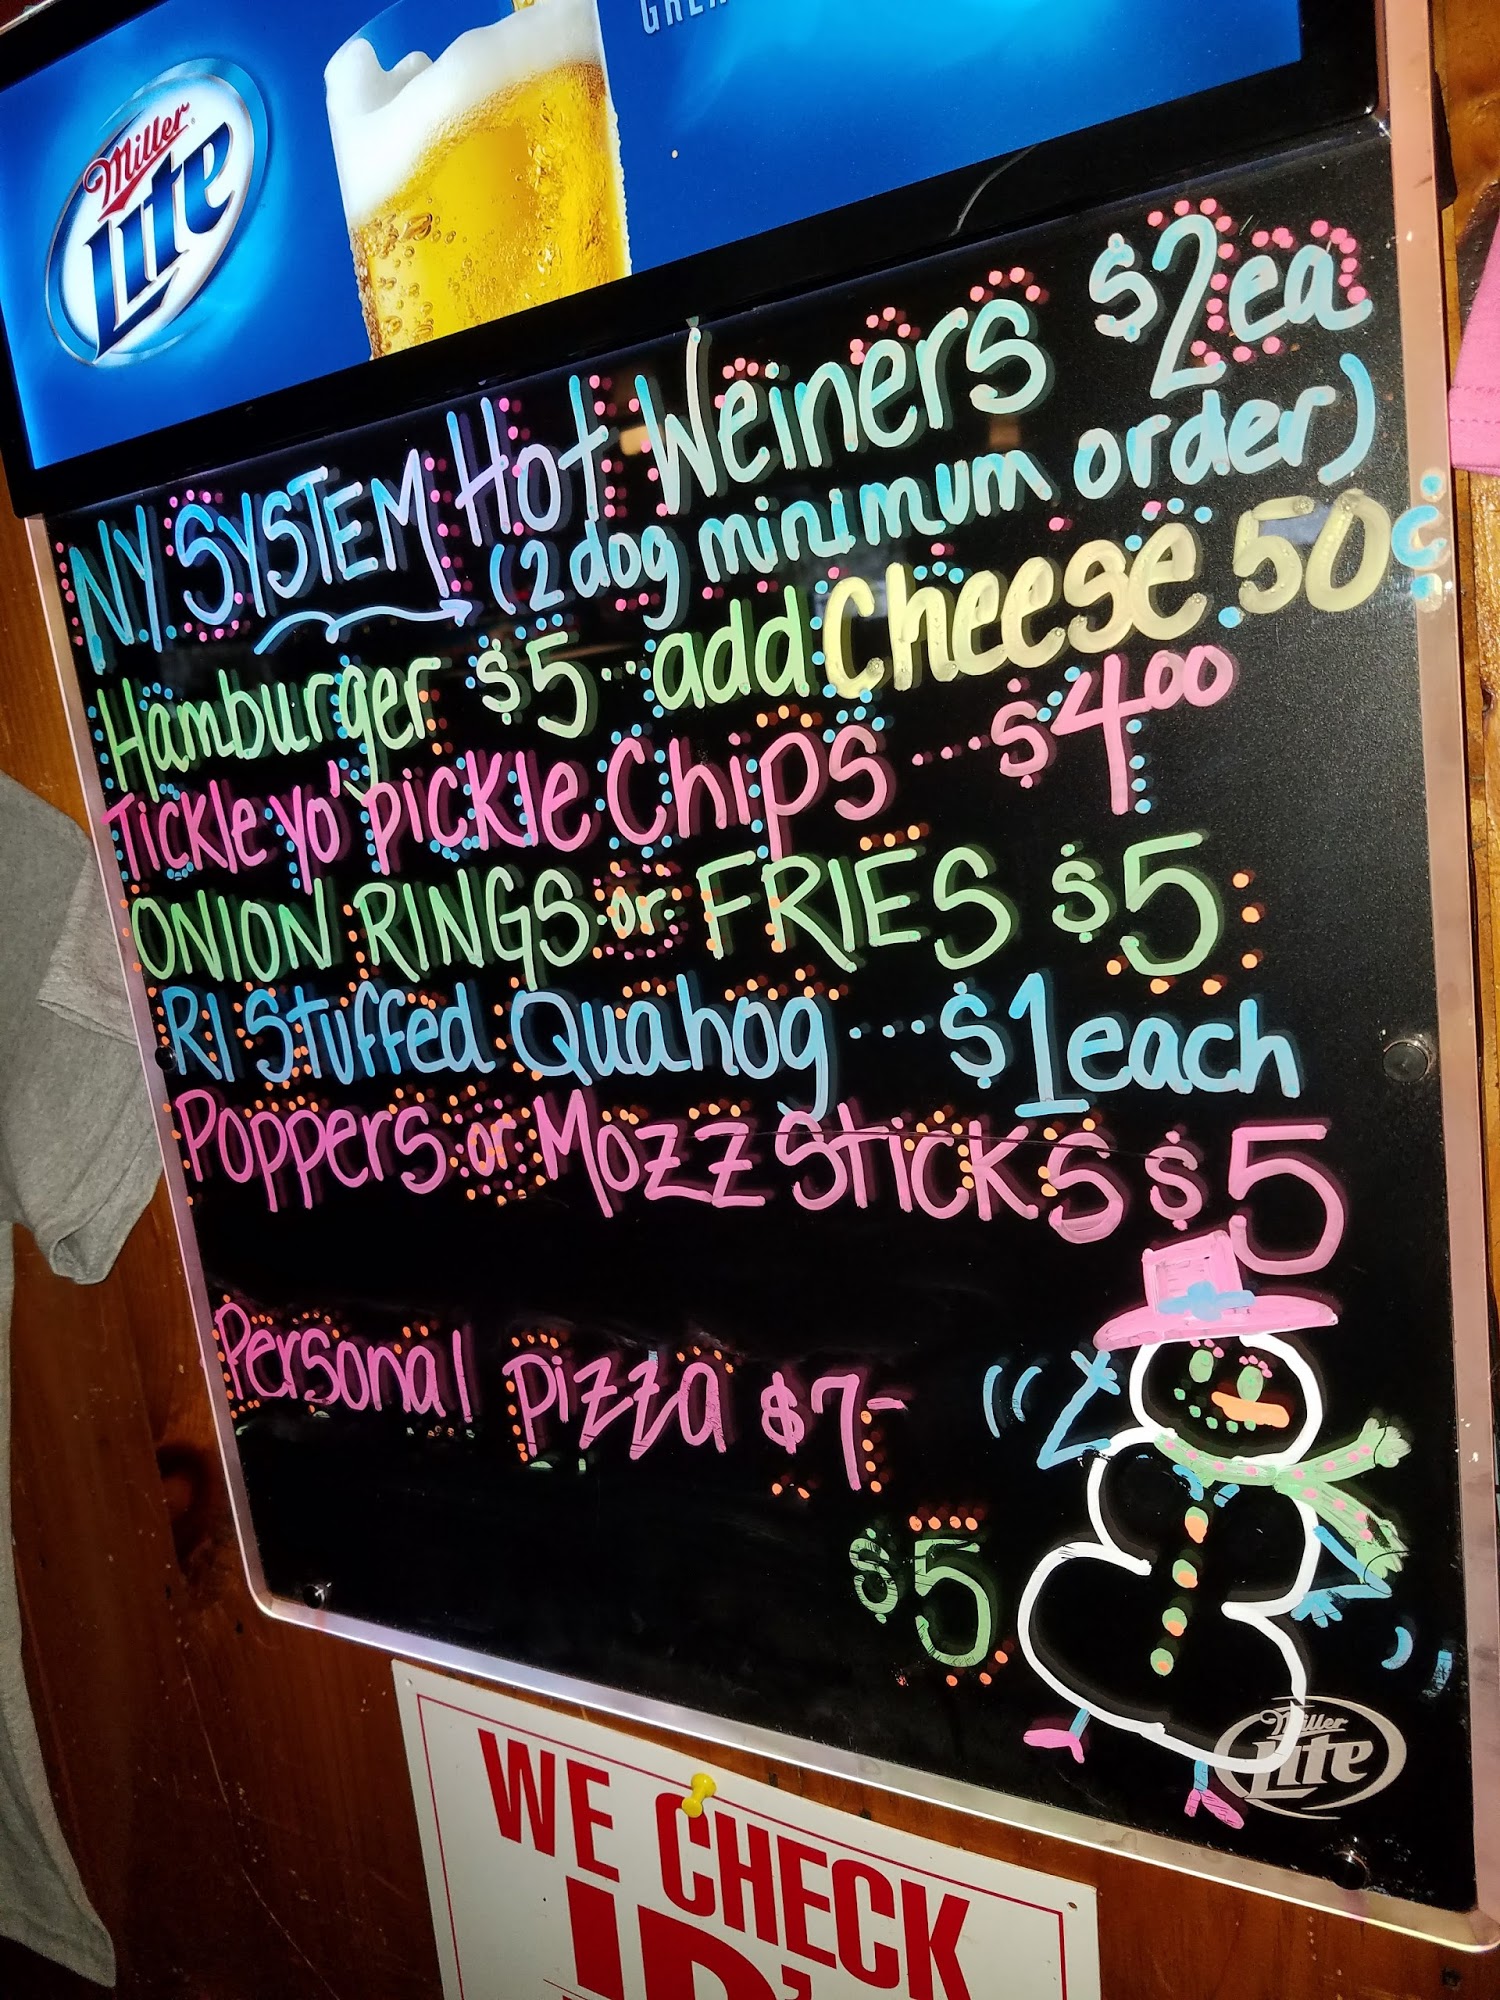 Miller
Lite
NY SYSTEM Hot Weiners $2ea
(2 dog minimum order)
Hamburger $5 -- add Cheese 50¢
Tickle yo' pickle Chips ---- $4.00
ONION RINGS or FRIES $5
RI Stuffed Quahog --- $1each
Poppers or Mozz Sticks $5
Personal pizza $7-
$5
Miller
Lite
WE CHECK
ID'